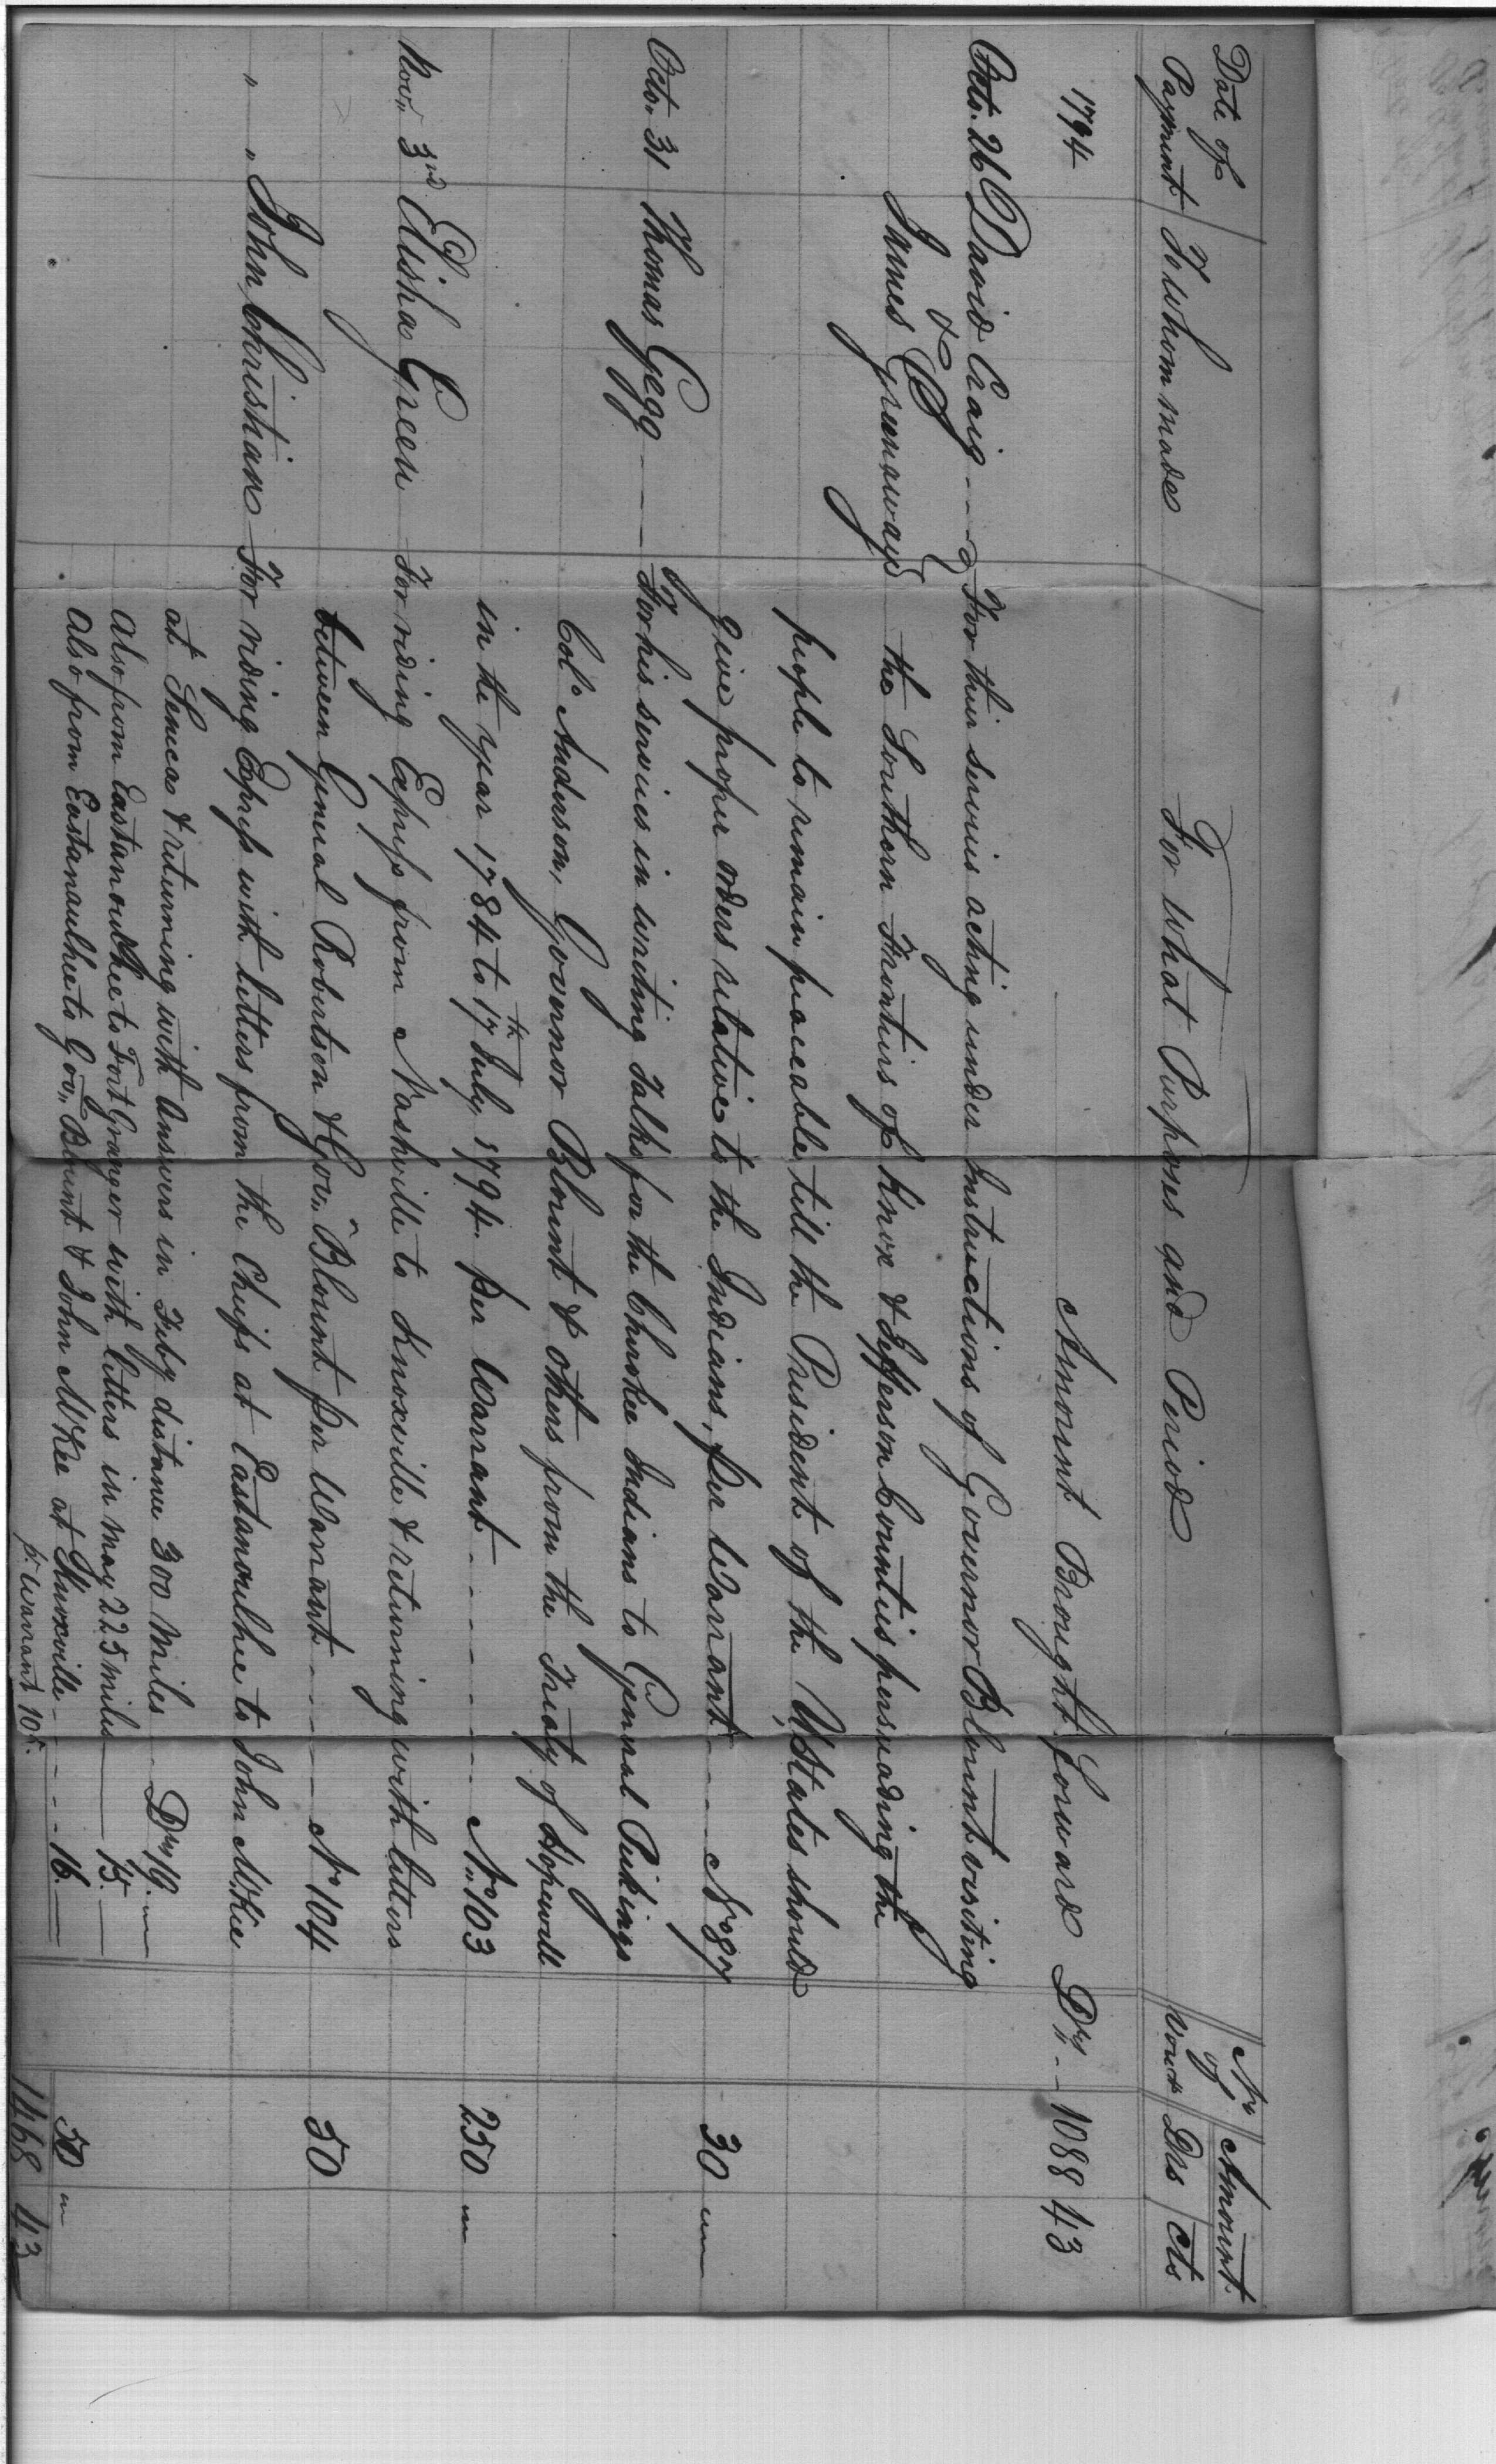 Date of Payment
To whom made
For what Purposes and Period
No of Vouchr
Amount
Drs
Cts
1794
Amount Brought forward Drs 1088 43
Octo. 26 David Craig - - - For their services acting under Instructions of Governor Blount visiting
&
James Greenaway the Southern Frontiers of Knox & Jefferson Counties persuading the
people to remain peaceable till the President of the U,States should
give proper orders relative to the Indians, per Warrant - - - No 87 30
Octo. 31 Thomas Gegg - For his services in writing Talks for the Cherokee Indians to General Pickings
Colo Anderson, Governor Blount & others from the Treaty of Hopewell
in the year 1784 to 17th July, 1794. per Warrant - - - - - - No 103 250
Nov,, 3rd Elisha Green For riding Express from Nashville to Knoxville & returning with letters
between General Robertson & Gov,, Blount per Warrant - - - - No 104 50
" " John Christian For riding Express with letters from the Chiefs at Eastanoulhee to John McKee
at Seneca & returning with Answers in Feby distance 300 Miles - - Drs 19.
Also from Eastanoulhee to Fort Granger with letters in may 225 miles 15.
Also from Eastanaulhee to Gov,, Blount & John McKee at Knoxville - - - - 16.
pr. Warrant 105. 50
1468 43